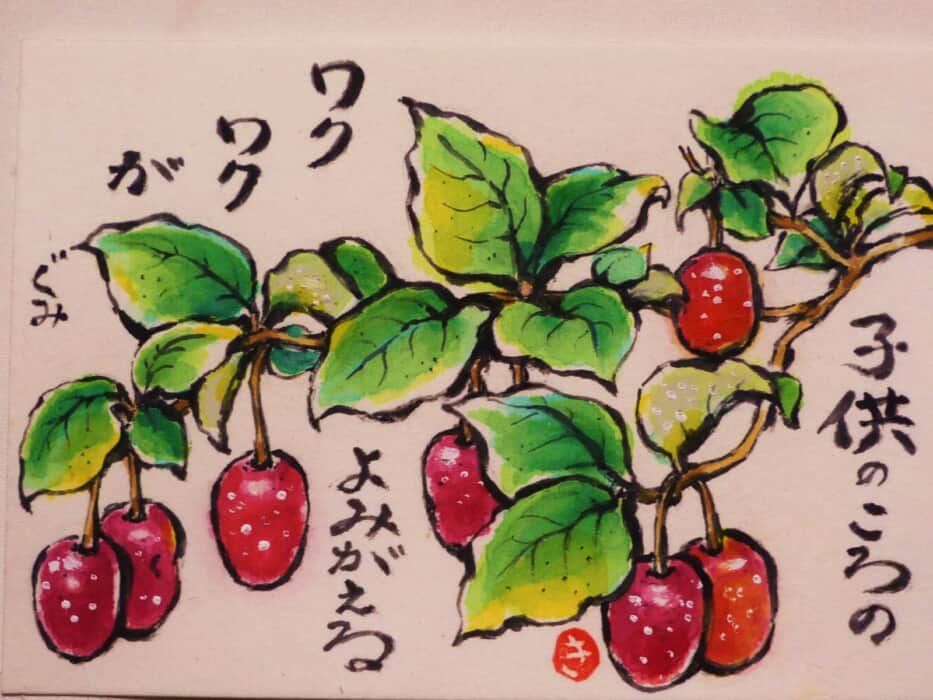 子供のころの
ワク
ワク
が
よみがえる
ぐみ
さ